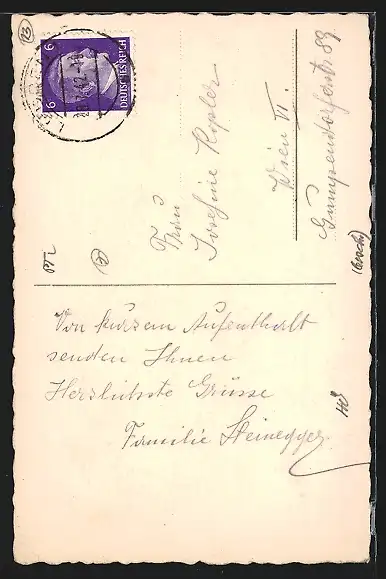 13
6
6
DEUTSCHES REICH
Frau
Josefine
Wien VI.
Gumpendorferstr 89
Von kurzem Aufenthalt
senden Ihnen
Herzlichste Grüsse
Familie Steinegger